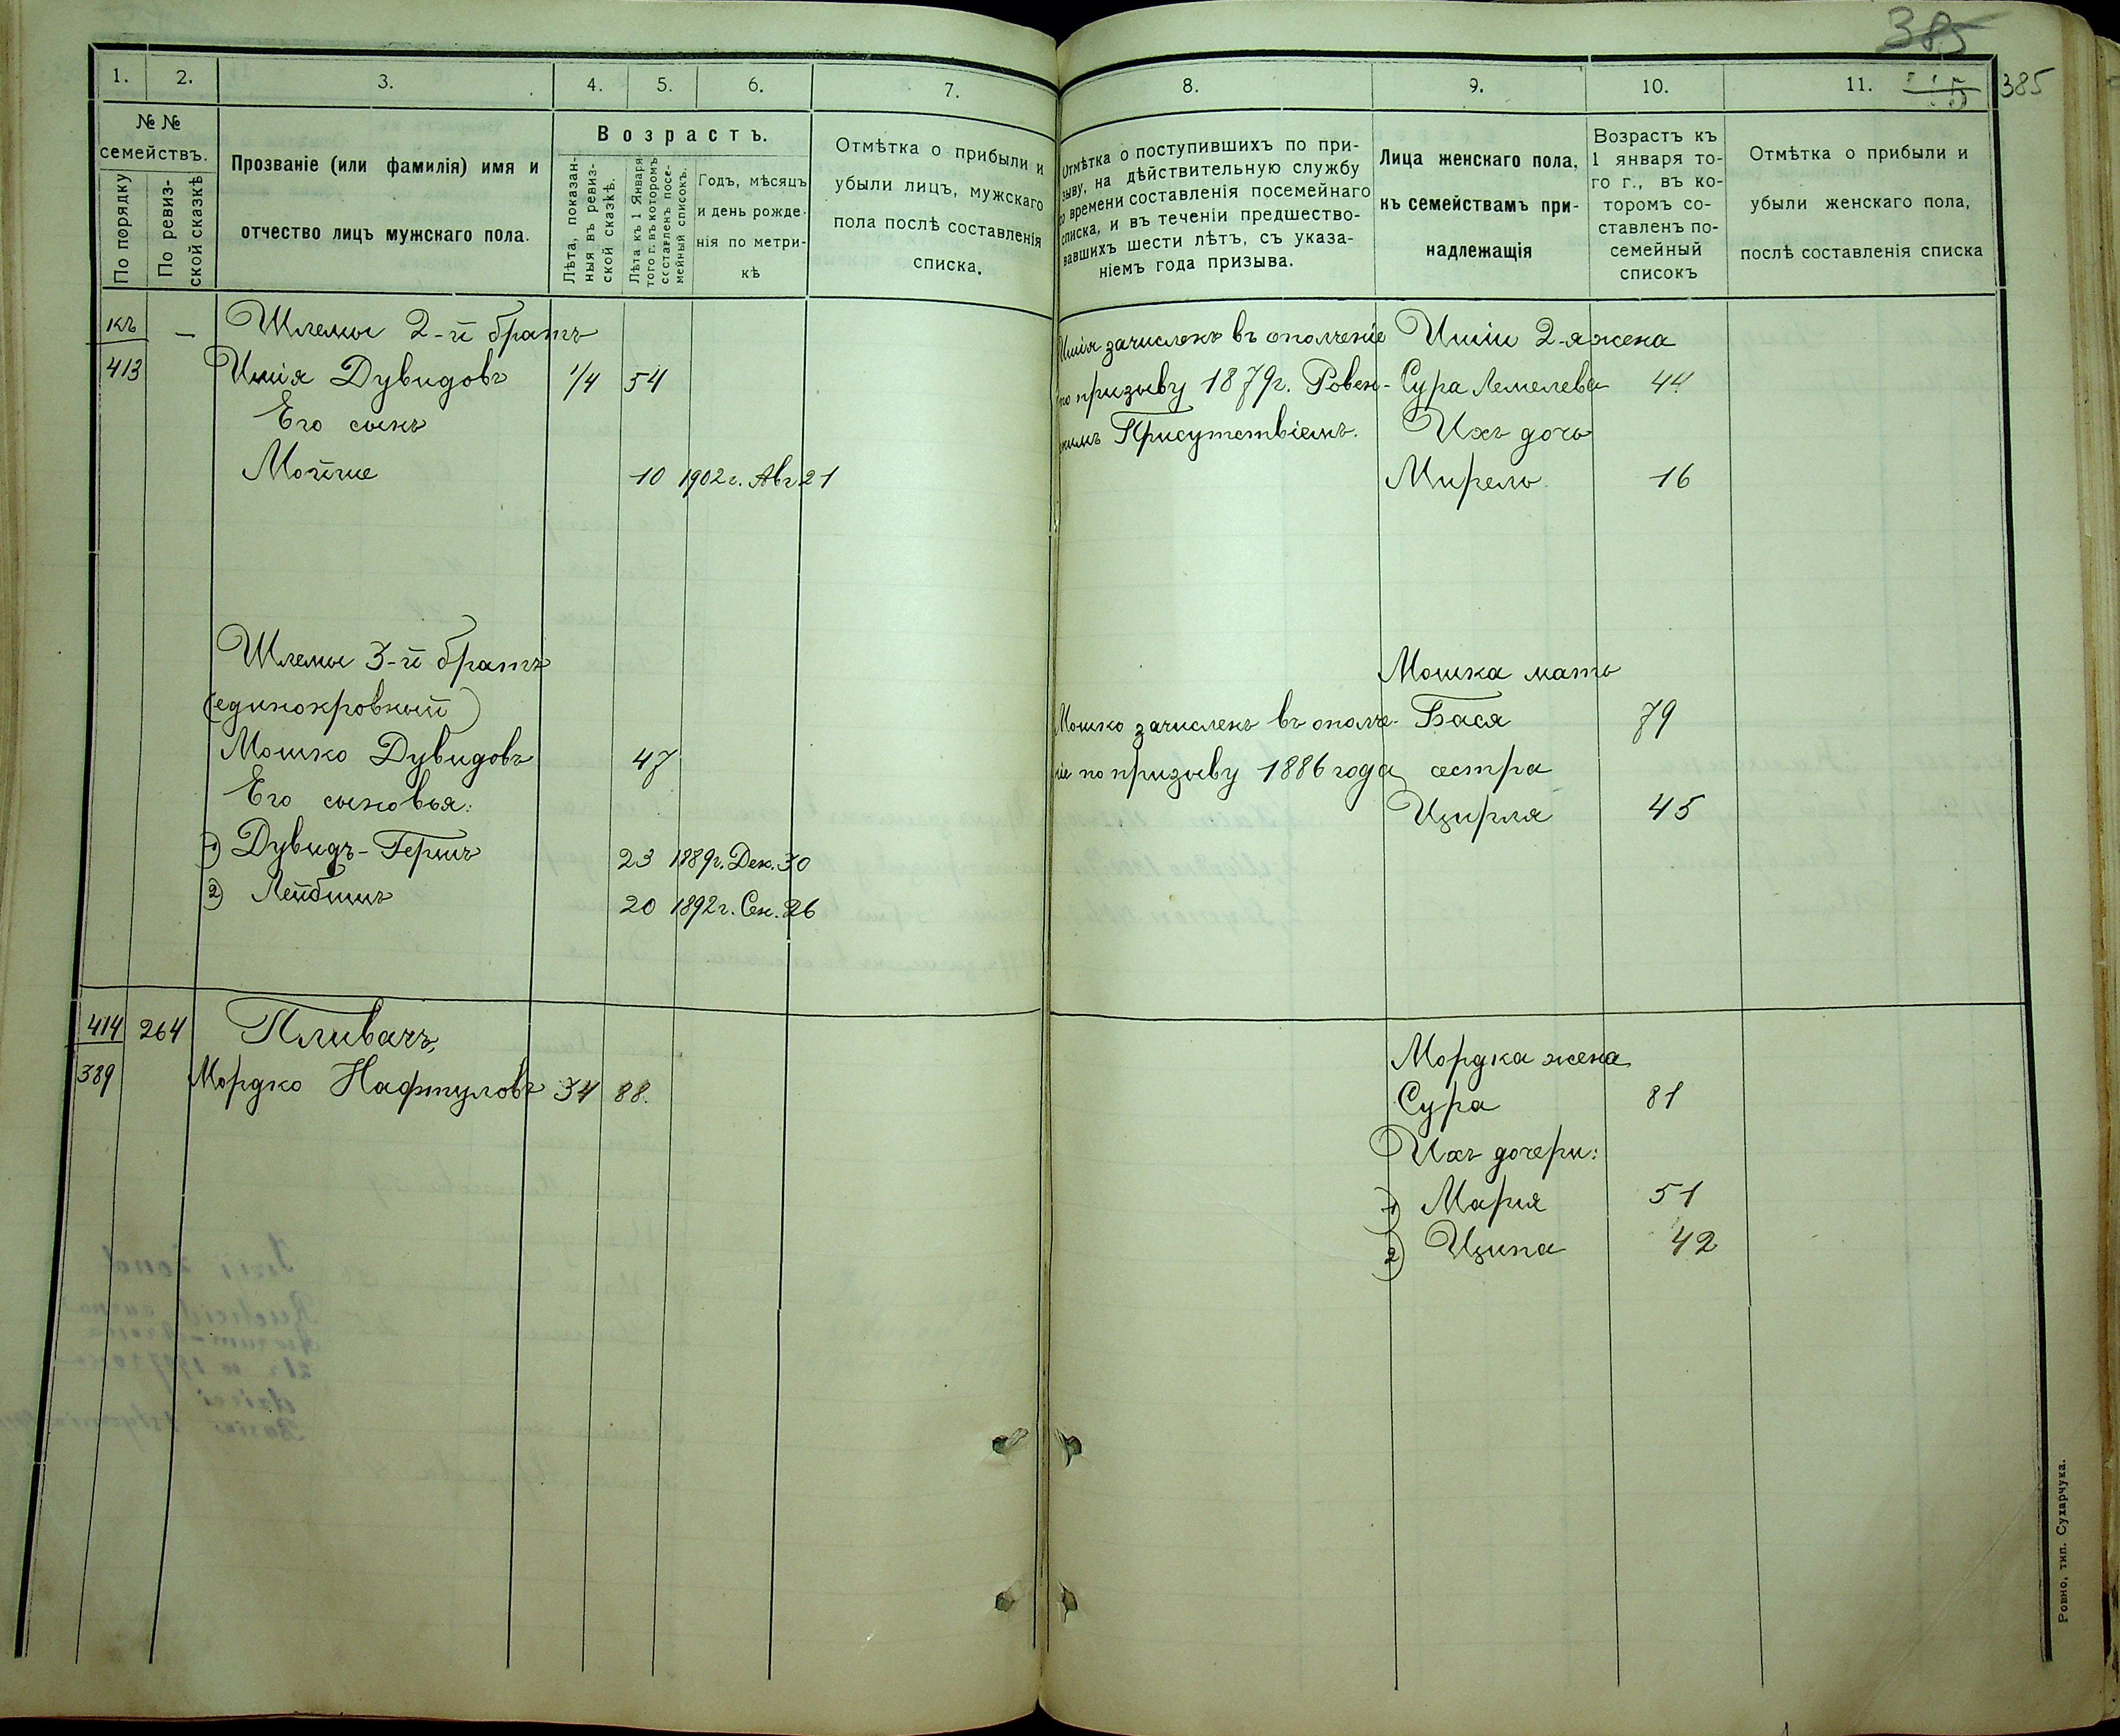 385
385
1. 2. 3. 4. 5. 6. 7. 8. 9. 10. 11.
№ №
семействъ.
По порядку
По ревиз-
ской сказкѣ
Прозваніе (или фамилія) имя и
отчество лицъ мужскаго пола.
Возрастъ.
Лѣта, показан-
ныя въ ревиз-
ской сказкѣ.
Лѣта къ 1 Января
того г. въ которомъ
составленъ посе-
мейный списокъ.
Годъ, мѣсяцъ
и день рожде-
нія по метри-
кѣ
Отмѣтка о прибыли и
убыли лицъ, мужскаго
пола послѣ составленія
списка.
Отмѣтка о поступившихъ по при-
зыву, на дѣйствительную службу
во времени составленія посемейнаго
списка, и въ теченіи предшество-
вавшихъ шести лѣтъ, съ указа-
ніемъ года призыва.
Лица женскаго пола,
къ семействамъ при-
надлежащія
Возрастъ къ
1 января то-
го г., въ ко-
торомъ со-
ставленъ по-
семейный
списокъ
Отмѣтка о прибыли и
убыли женскаго пола,
послѣ составленія списка
къ — Шлемы 2-й братъ
413 Ишія Дувидовъ 1/4 54
Его сынъ
Мойше 10 1902 г. Авг 21
Ишія зачисленъ въ ополченіе
по призыву 1879 г. Ровен-
скимъ Присутствіемъ.
Ишіи 2-я жена
Сура Лемелева 44
Ихъ дочь
Мирель 16
Шлемы 3-й братъ
(единокровный)
Мошко Дувидовъ 47
Его сыновья:
1) Дувидъ-Гершъ 23 1889 г. Дек. 30
2) Лейбишъ 20 1892 г. Сен. 26
Мошко зачисленъ въ ополче-
ніе по призыву 1886 года
Мошка мать
Бася 79
сестра
Цирля 45
414 264 Пливачъ,
389 Мордко Нафтуловъ 34 88.
Мордка жена
Сура 81
Ихъ дочери:
1) Марія 51
2) Ципа 42
Ровно, тип. Сухарчука.